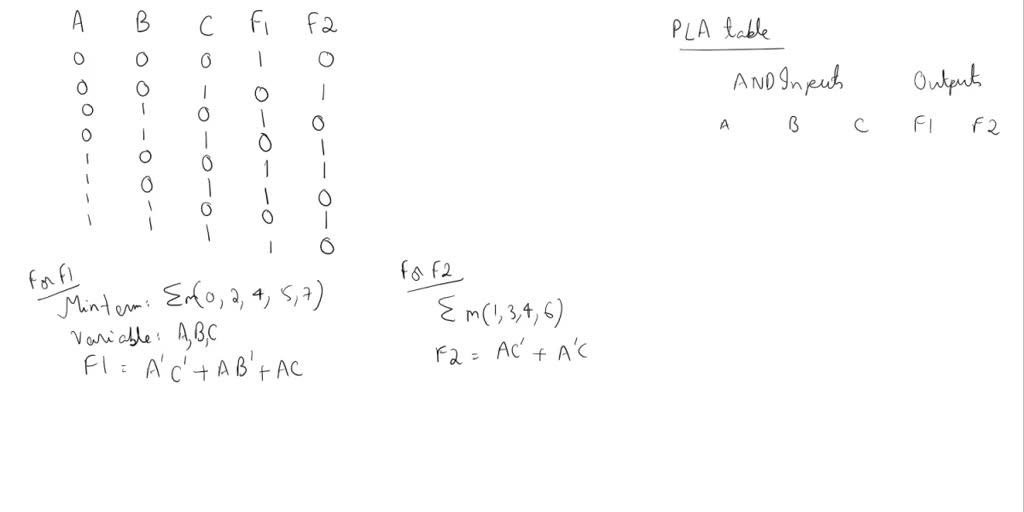 A B C F1 F2
0 0 0 1 0
0 0 1 0 1
0 1 0 1 0
0 1 1 0 1
1 0 0 1 1
1 0 1 1 0
1 1 0 0 1
1 1 1 1 0
For F1
Minterm: Σm(0, 2, 4, 5, 7)
Variable: A,B,C
F1 = A'C' + AB' + AC
For F2
Σ m(1,3,4,6)
F2 = AC' + A'C
PLA table
AND Inputs Outputs
A B C F1 F2